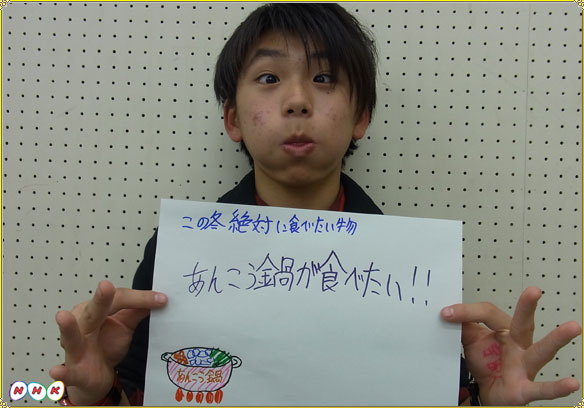 この冬絶対に食べたい物
あんこう鍋が食べたい!!
あんこう鍋
NHK